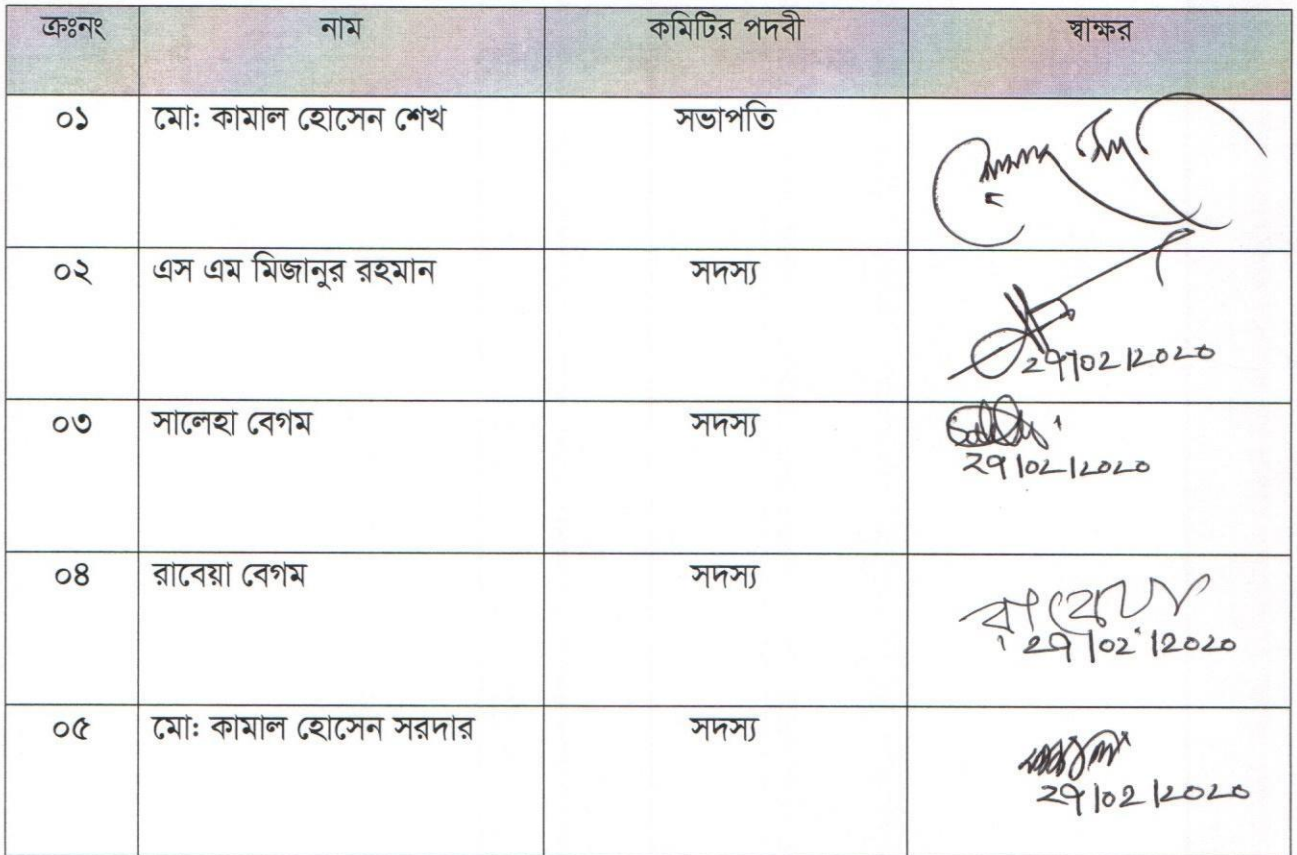 ক্রঃনং নাম কমিটির পদবী স্বাক্ষর
০১ মো: কামাল হোসেন শেখ সভাপতি
০২ এস এম মিজানুর রহমান সদস্য
29/02/2020
০৩ সালেহা বেগম সদস্য
29/02/2020
০৪ রাবেয়া বেগম সদস্য
29/02/2020
০৫ মো: কামাল হোসেন সরদার সদস্য
29/02/2020